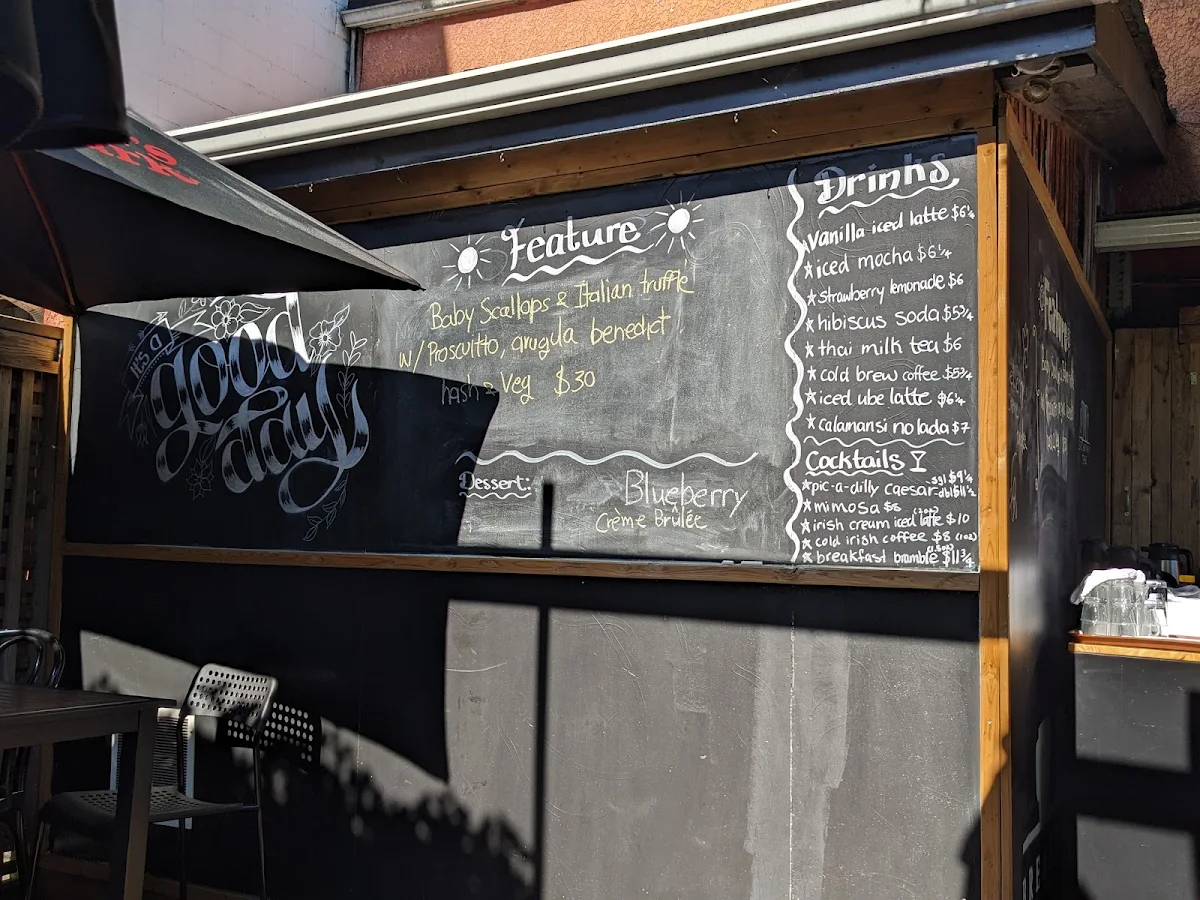 It's a
good
day
Feature
Baby Scallops & Italian truffle
w/ Proscuitto, arugula benedict
hash & Veg $30
Dessert:
Blueberry
Crème Brûlée
Drinks
Vanilla iced latte $6¼
iced mocha $6¼
strawberry lemonade $6
hibiscus soda $5¾
thai milk tea $6
cold brew coffee $5¾
iced ube latte $6¼
calamansi nolada $7
Cocktails
pic-a-dilly caesar -sgl $9¼ -dbl $11½
mimosa $8
irish cream iced latte (2oz) $10
cold irish coffee $8 (1oz)
breakfast bramble (1.5oz) $11¾
Feature